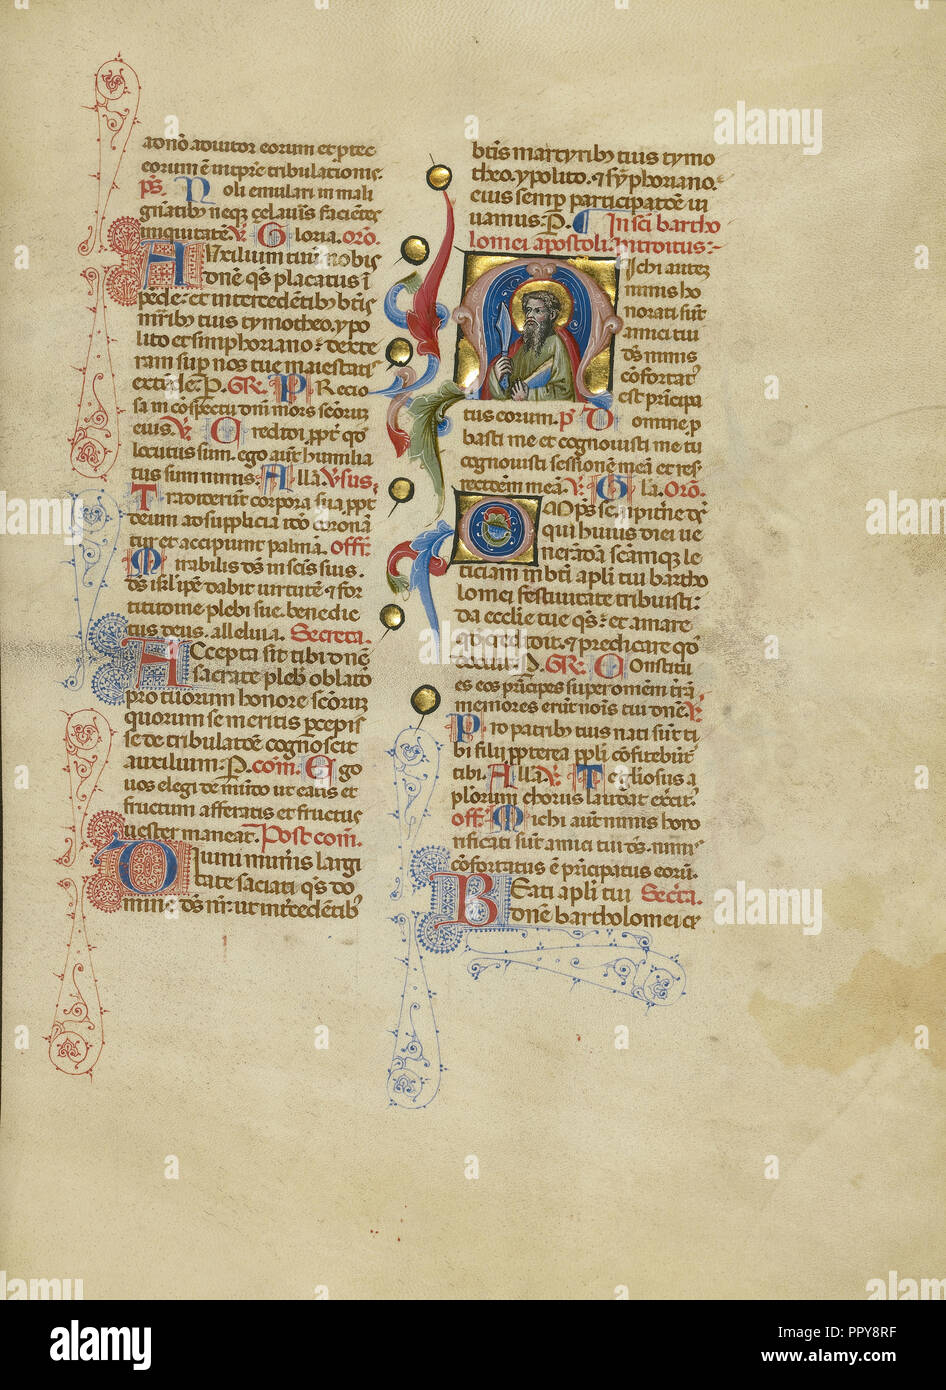 a domino adiutor eorum et protec
eorum e in tpre tribulationis.
ps. Noli emulari in mali
gnatibus neqz celaueris facietes
iniquitate. V. Gloria. oro.
Auxilium tuum nobis
done qs placatus i
pede: et intercedentibz btis
mribz tuis tymotheo. ypo
lito et simphoriano: dexte
ram sup nos tue maiestatis
extende. P. GR. Precio
sa in cospectu dni mors scoruz
eius. V. Credidi ppt qd
locutus sum. ego aut humilia
tus sum nimis. Alla. Vsus.
Tradiderunt corpora sua ppt
deum ad supplicia ido corona
tur et accipiunt palma. Offr.
Mirabilis ds in scis suis.
ds isrl ipe dabit uirtute et for
titudine plebi sue. benedic
tus deus. alleluia. Secreta.
Accepta sit tibi dne
sacrate plebis oblatio
pro tuorum honore scoruz
quorum se meritis pcepis
se de tribulatoe cognoscit
auxilium: P. com. Ego
uos elegi de mudo ut eatis et
fructum afferatis et fructus
uester maneat. Post com.
Diuini muneris largi
tate saciati qs do
mine ds nr: ut intcedentibz
btis martyribz tuis tymo
theo. ypolito. et symphoriano.
eius semp participatioe ui
uamus. P. In sci bartho
lomei apostoli. Introitus:
Michi autez
nimis ho
norati sut
amici tui
ds nimis
cofortat
est pricipa
tus eorum. ps Domine p
basti me et cognouisti me tu
cognouisti sessione mea et res
rectioem mea. V. Gla. Oro.
OMps sempiterne ds
qui huius diei ue
neradam scamqz le
ticiam in bti apli tui bartho
lomei festiuitate tribuisti:
da ecclie tue qs: et amare
qd credidit. et predicare qd
docuit. P. GR. Constitu
es eos pricipes super omem tra
memores erunt nois tui dne. V.
Pro patribus tuis nati sut ti
bi filii ppterea ppli cofitebut
tibi. Alla. V. Te gloriosus a
plorum chorus laudat exercit.
Off. Michi aut nimis hono
rificati sut amici tui ds. nimis
cofortatus e pricipatus eoru.
Beati apli tui Secreta.
done bartholomei et
alamy
a
Image ID: PPY8RF
www.alamy.com